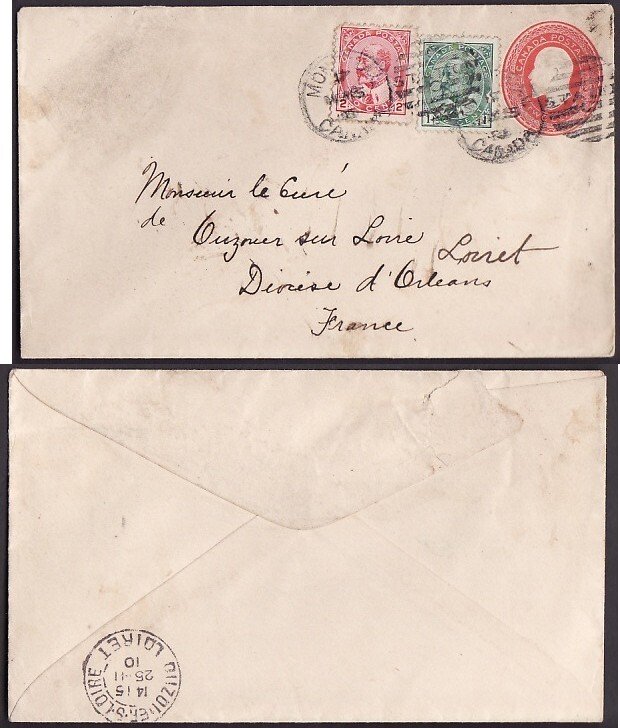 CANADA POSTAGE
2 CENTS 2
1 1
CANADA POSTAGE
MON
CANADA
CANADA
Monsieur le Curé
de
Ouzouer sur Loire Loiret
Diocèse d'Orleans
France
OUZOUER-S-LOIRE
LOIRET
14 15
25-11
10